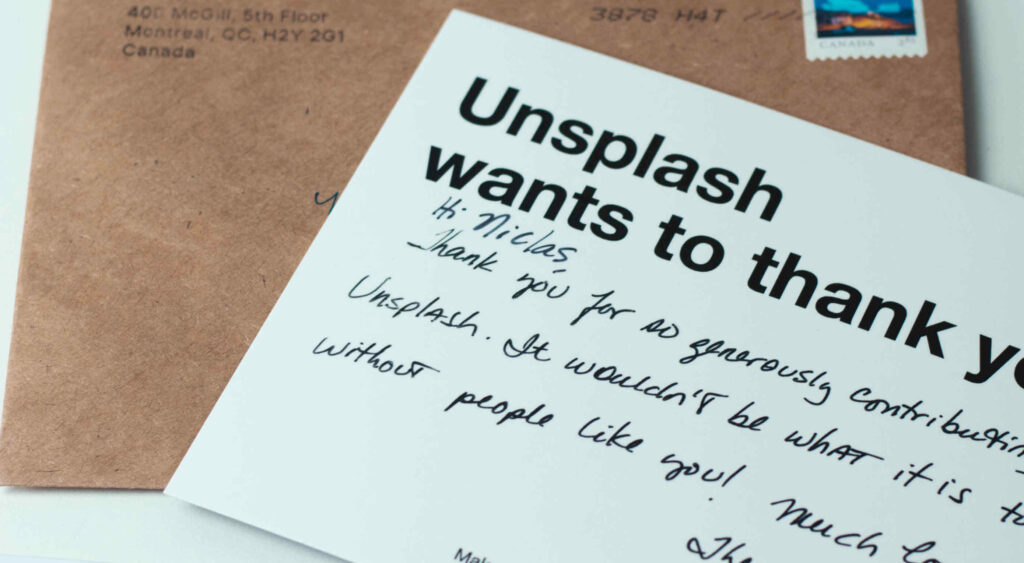 McGill, 5th Floor
Montreal, QC, H2Y 2G1
Canada
3878 H4T
CANADA
Unsplash
wants to thank
Hi Niclas,
Thank you for so generously contributing
Unsplash. It wouldn't be what it is
without
people like you! Much